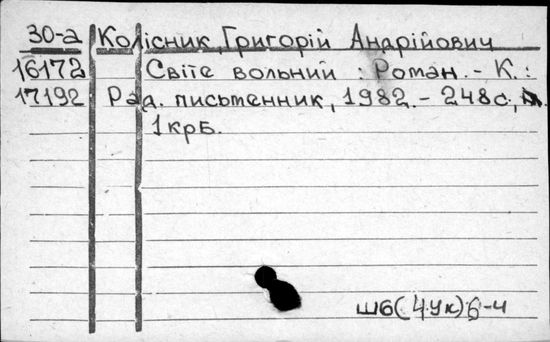 30-а Колісник, Григорій Андрійович
16172 Світе вольний : Роман. - К. :
17192 Рад. письменник, 1982. - 248с,
1крб.
Ш6(4Ук)6-4